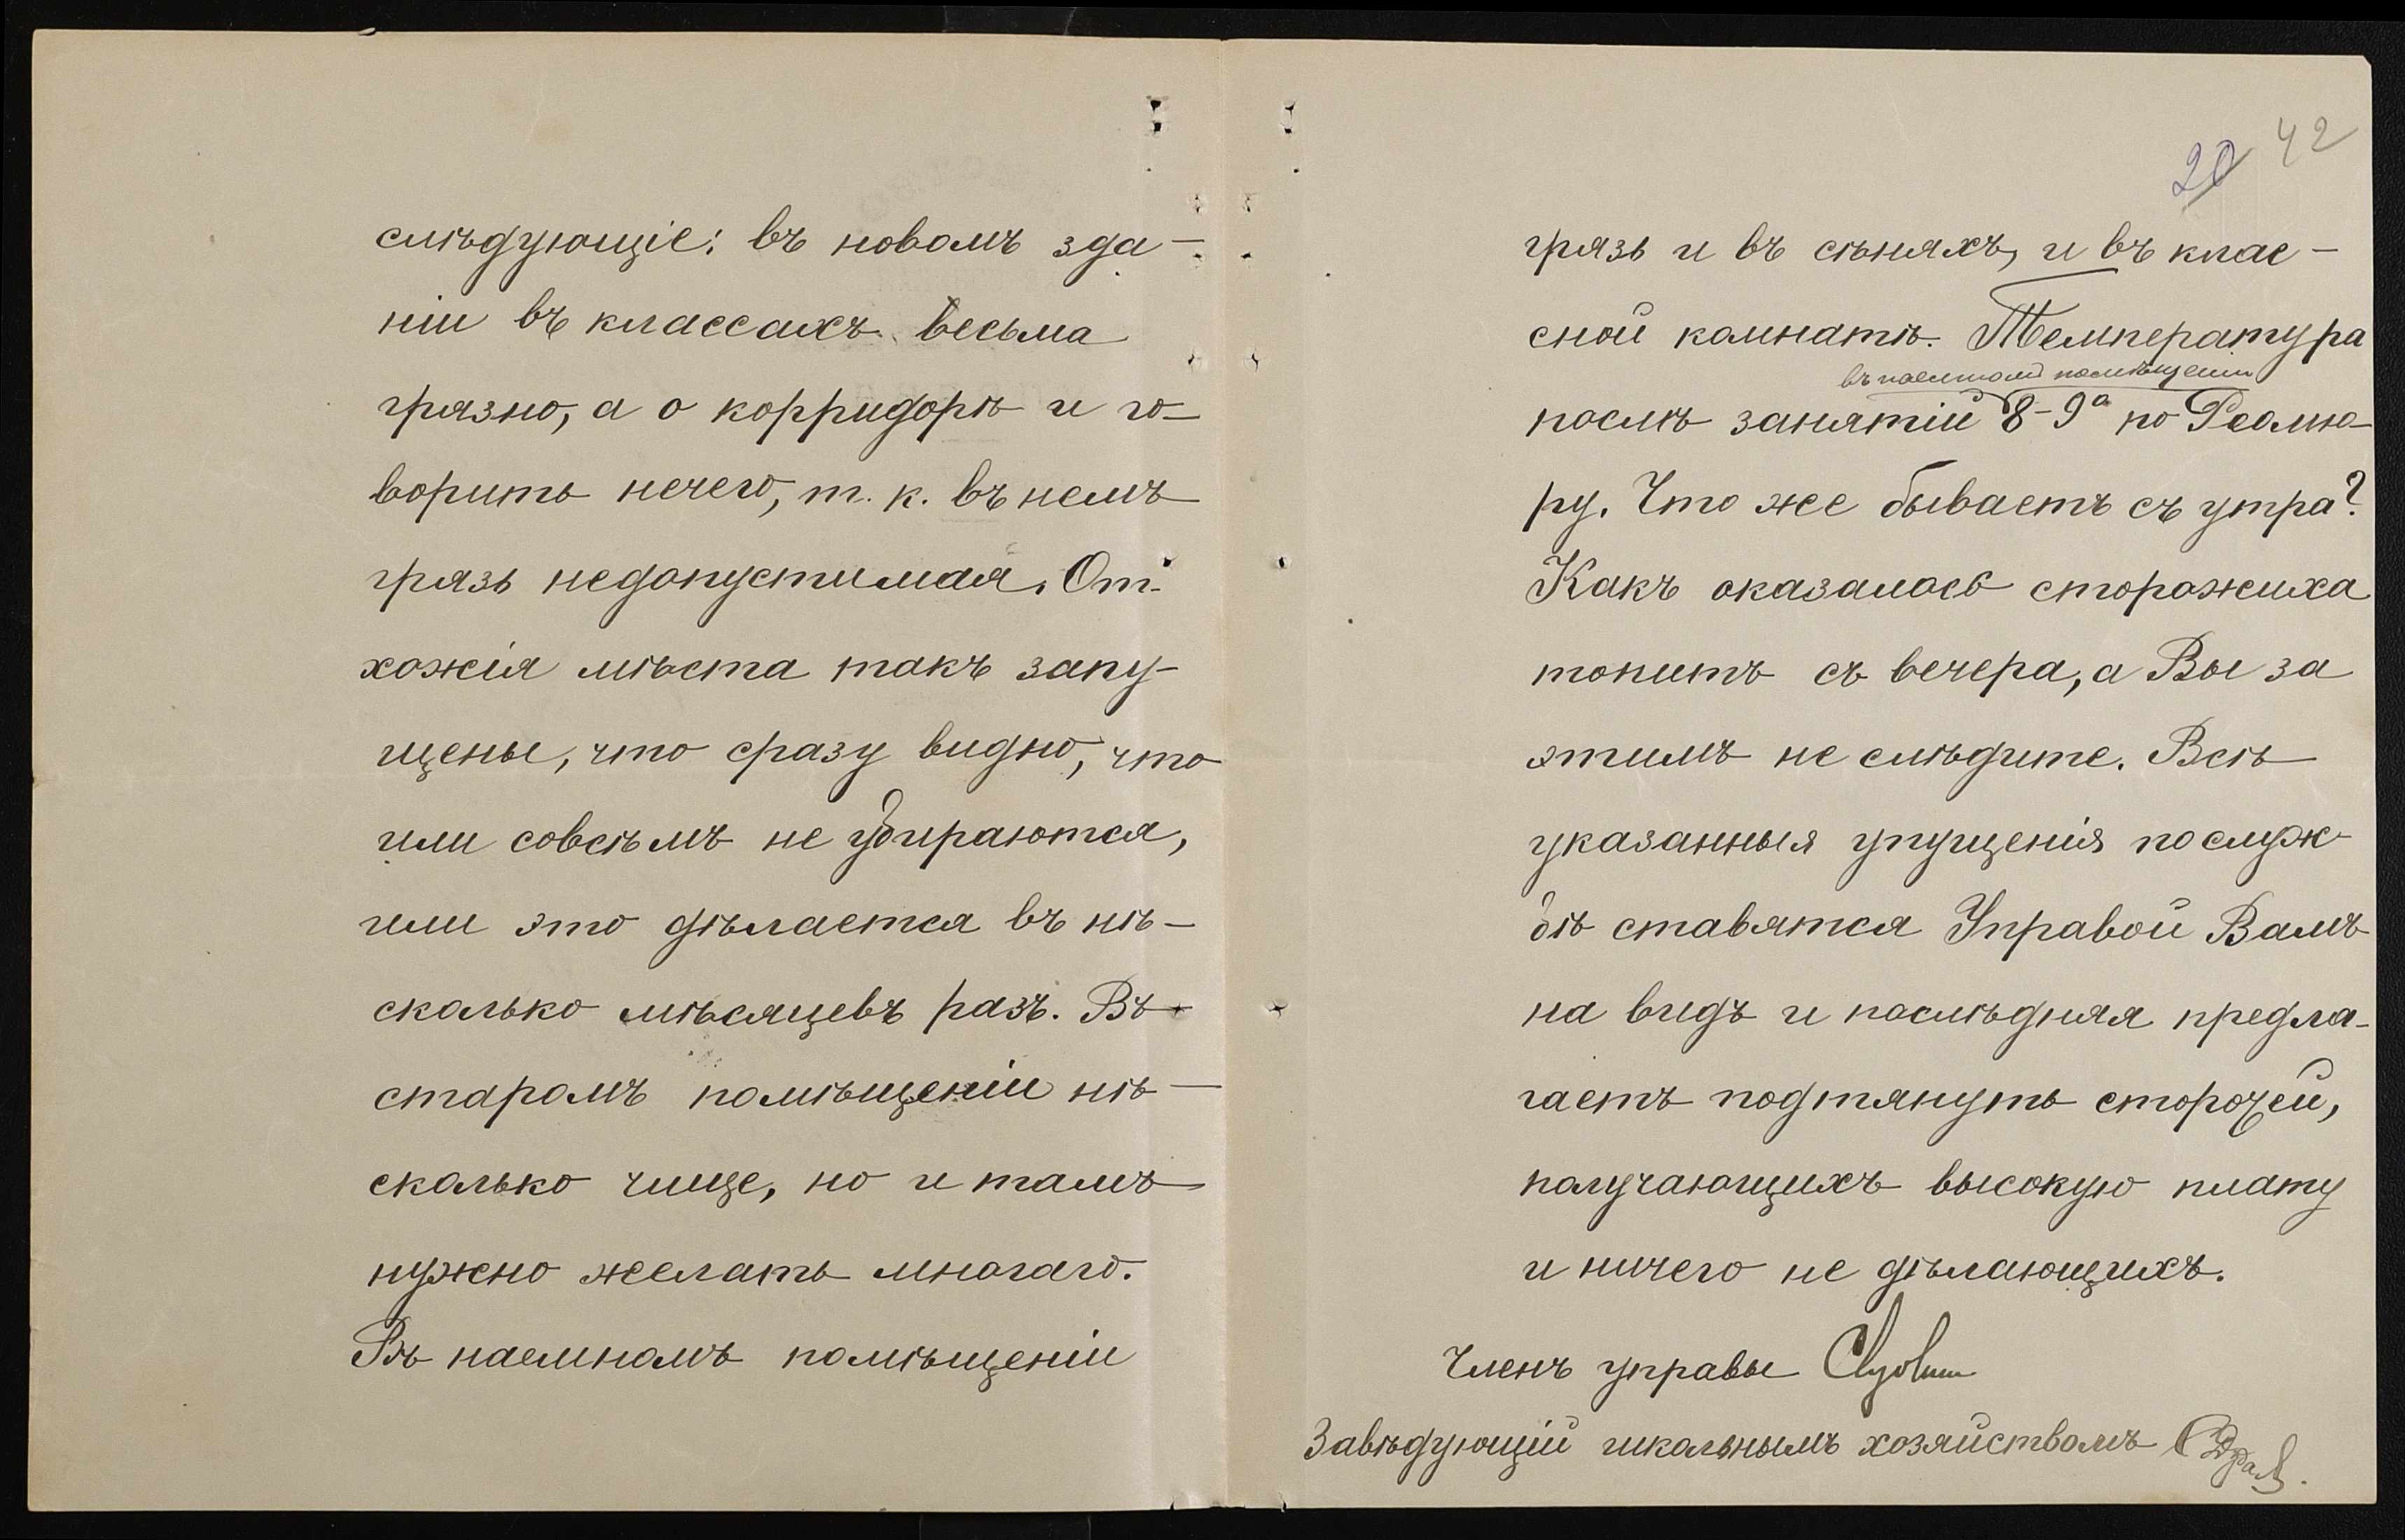 слѣдующіе: въ новомъ зда-
ніи въ классахъ весьма
грязно, а о корридорѣ и го-
ворить нечего, т. к. въ немъ
грязь недопустимая. От-
хожія мѣста такъ запу-
щены, что сразу видно, что
или совсѣмъ не убираются,
или это дѣлается въ нѣ-
сколько мѣсяцевъ разъ. Въ
старомъ помѣщеніи нѣ-
сколько чище, но и тамъ
нужно желать многаго.
Въ наемномъ помѣщеніи
20 42
грязь и въ сѣняхъ, и въ клас-
сной комнатѣ. Температура
въ наемномъ помѣщеніи
послѣ занятій 8-9° по Реомю-
ру. Что же бываетъ съ утра?
Какъ оказалось сторожиха
топитъ съ вечера, а Вы за
этимъ не слѣдите. Всѣ
указанныя упущенія по служ-
бѣ ставятся Управой Вамъ
на видъ и послѣдняя предла-
гаетъ подтянуть сторожей,
получающихъ высокую плату
и ничего не дѣлающихъ.
Членъ управы
Завѣдующій школьнымъ хозяйствомъ